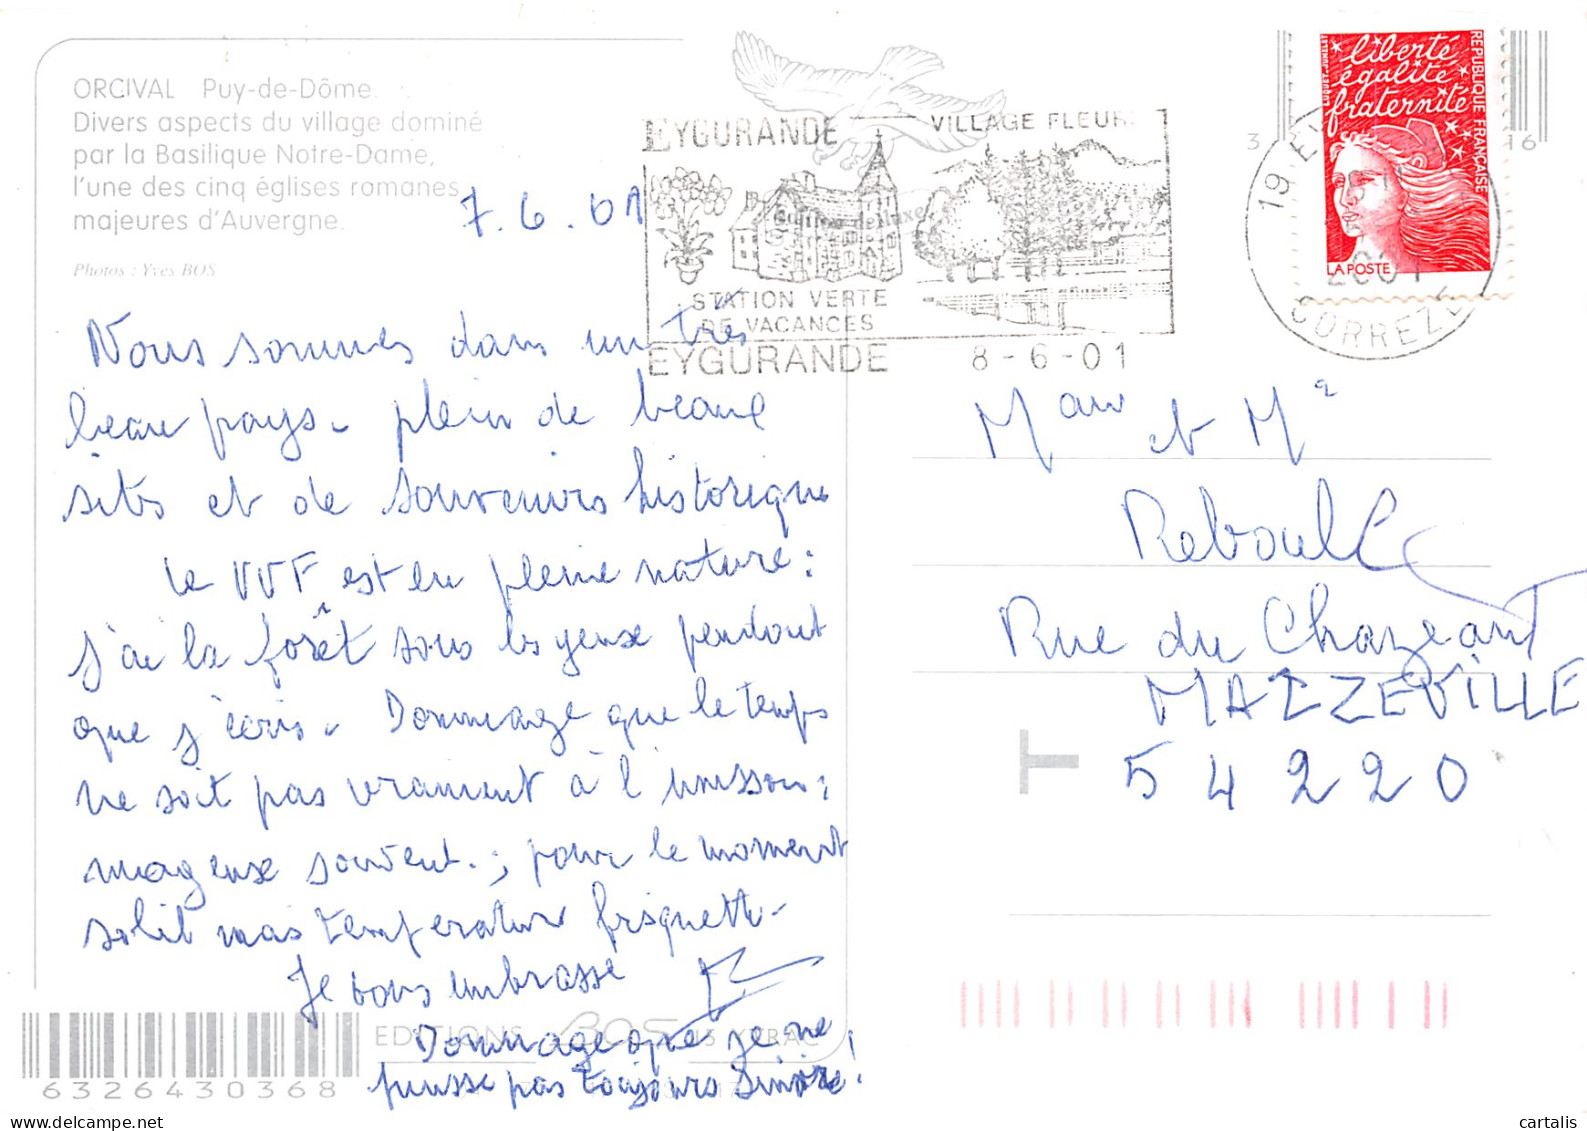 ORCIVAL Puy-de-Dôme.
Divers aspects du village dominé
par la Basilique Notre-Dame,
l'une des cinq églises romanes
majeures d'Auvergne.
Photos : Yves BOS
7.6.01
EYGURANDE
VILLAGE FLEURI
STATION VERTE
DE VACANCES
EYGURANDE 8-6-01
liberté
égalité
fraternité
RÉPUBLIQUE FRANÇAISE
LA POSTE
19 EY
2001
CORREZE
3 16
Nous sommes dans un très
beau pays. plein de beaux
sites et de souvenirs historique
le VVF est en pleine nature :
j'ai la forêt sous les yeux pendant
que j'écris. Dommage que le temps
ne soit pas vraiment à l'unisson :
nuageux souvent. ; pour le moment
soleil mais température frisquette.
Je vous embrasse
Dommage que je ne
puisse pas toujours suivre !
Mme et Mr
Reboulle
Rue du Chazeau
MALZEVILLE
54220
T
EDITIONS BOS
6326430368
cartalis